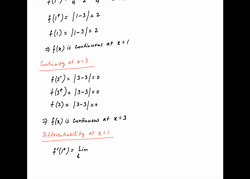 f(1⁺) = |1-3| = 2
f(1) = |1-3| = 2
⇒ f(x) is continuous at x = 1
Continuity at x = 3
f(3⁻) = |3-3| = 0
f(3⁺) = |3-3| = 0
f(3) = |3-3| = 0
⇒ f(x) is continuous at x = 3
Differentiability at x = 1
f'(1⁺) = Lim
h